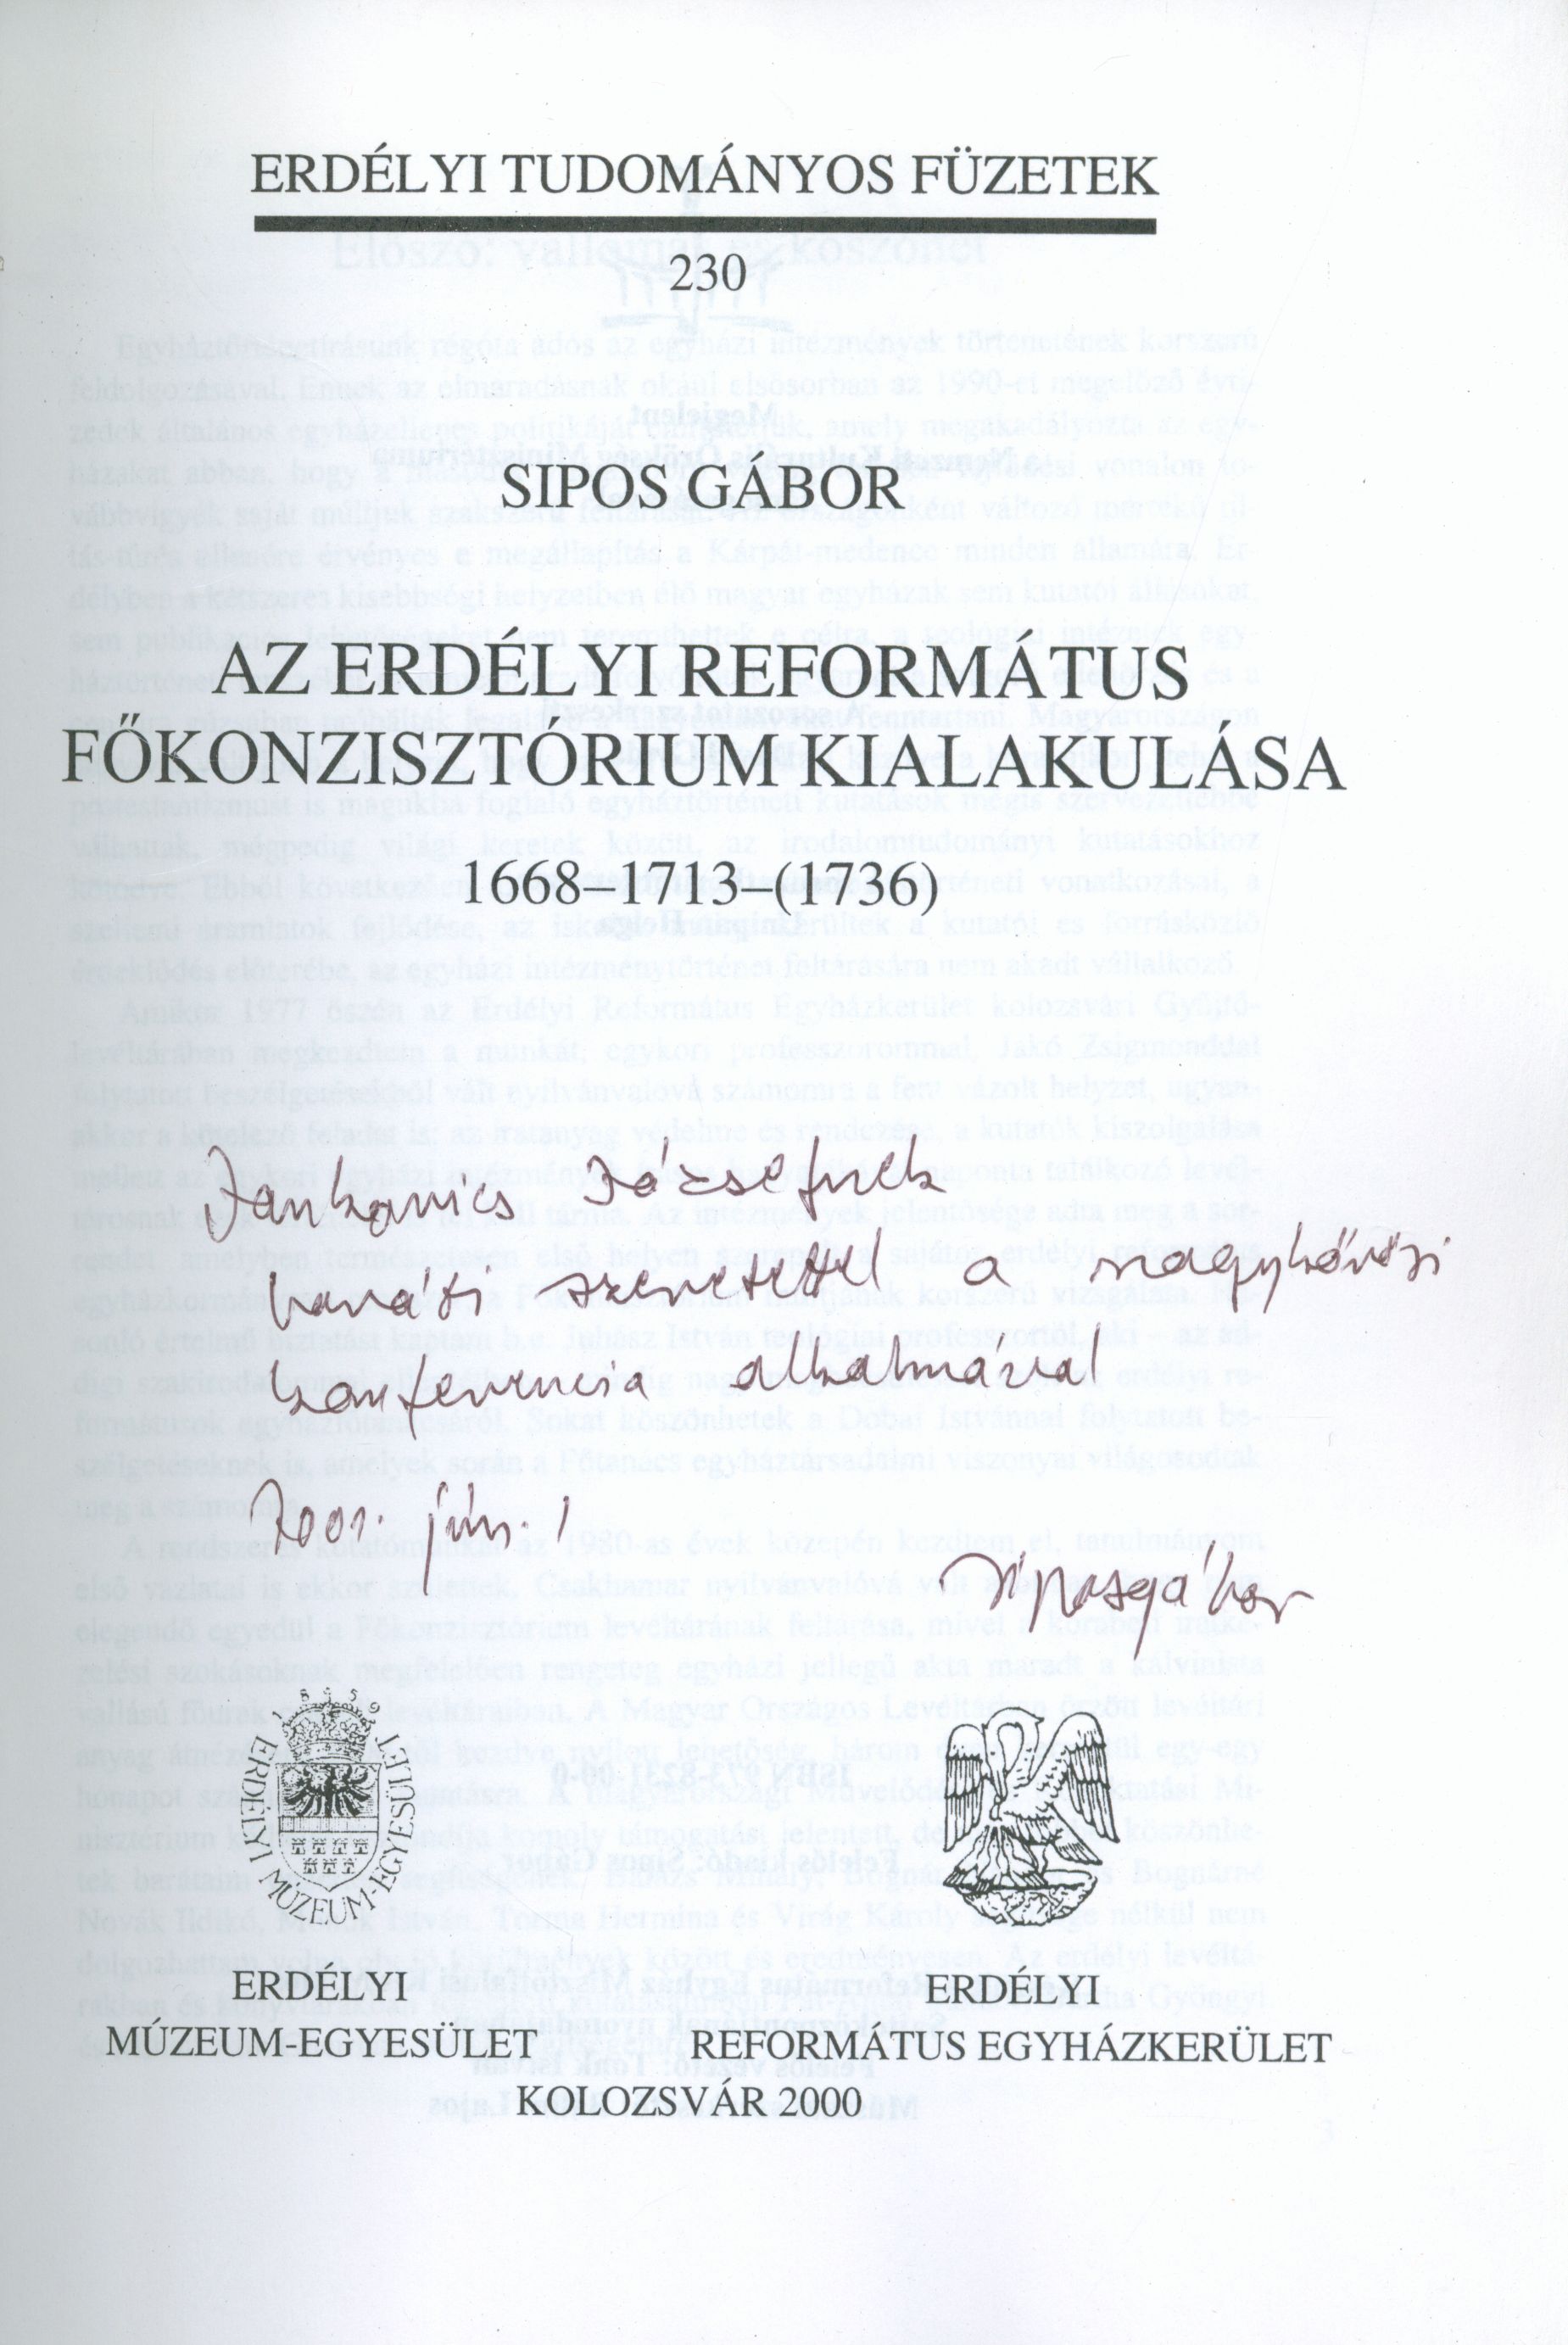 ERDÉLYI TUDOMÁNYOS FÜZETEK
230
SIPOS GÁBOR
AZ ERDÉLYI REFORMÁTUS
FŐKONZISZTÓRIUM KIALAKULÁSA
1668–1713–(1736)
Jankovics Józsefnek
baráti szeretettel a nagykőrösi
konferencia alkalmával
2001. jún. 1
Sipos Gábor
1859
ERDÉLYI MÚZEUM-EGYESÜLET
ERDÉLYI
MÚZEUM-EGYESÜLET
ERDÉLYI
REFORMÁTUS EGYHÁZKERÜLET
KOLOZSVÁR 2000